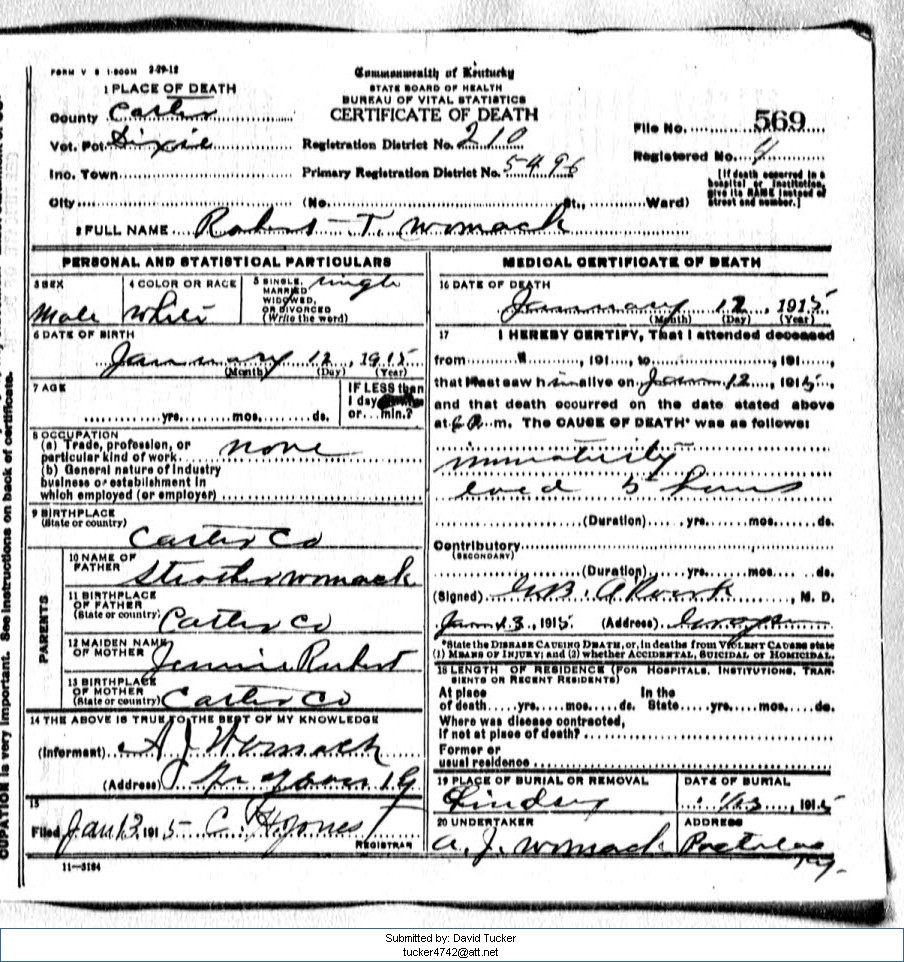 FORM V S 1-500M 3-29-12
Commonwealth of Kentucky
STATE BOARD OF HEALTH
BUREAU OF VITAL STATISTICS
CERTIFICATE OF DEATH
1 PLACE OF DEATH
County Carter
Vot. Pct. Dixie
Inc. Town
City
Registration District No. 210
Primary Registration District No. 5496
(No. St., Ward)
File No. 569
Registered No. 4
[If death occurred in a
hospital or institution,
give its NAME instead of
street and number.]
2 FULL NAME Robert T. Womack
PERSONAL AND STATISTICAL PARTICULARS
3 SEX
Male
4 COLOR OR RACE
White
5 SINGLE,
MARRIED
WIDOWED,
OR DIVORCED
(Write the word)
single
6 DATE OF BIRTH
January 12, 1915
(Month) (Day) (Year)
7 AGE
yrs. mos. ds.
IF LESS than
1 day
or min.?
8 OCCUPATION
(a) Trade, profession, or
particular kind of work none
(b) General nature of industry
business or establishment in
which employed (or employer)
9 BIRTHPLACE
(State or country)
Carter Co
PARENTS
10 NAME OF
FATHER
Strother Womack
11 BIRTHPLACE
OF FATHER
(State or country) Carter Co
12 MAIDEN NAME
OF MOTHER Jennie
13 BIRTHPLACE
OF MOTHER
(State or country) Carter Co
14 THE ABOVE IS TRUE TO THE BEST OF MY KNOWLEDGE
(Informant) A J Womack
(Address)
15
Filed Jan 13 1915 C. H. Jones
REGISTRAR
11-3184
MEDICAL CERTIFICATE OF DEATH
16 DATE OF DEATH
January 12, 1915
(Month) (Day) (Year)
17 I HEREBY CERTIFY, That I attended deceased
from , 191 , to , 191 ,
that I last saw him alive on Jan 12, 1915,
and that death occurred on the date stated above
at m. The CAUSE OF DEATH* was as follows:
immaturity
lived 5 hours
(Duration) yrs. mos. ds.
Contributory
(SECONDARY)
(Duration) yrs. mos. ds.
(Signed) , M. D.
Jan 13, 1915 (Address)
*State the DISEASE CAUSING DEATH, or, in deaths from VIOLENT CAUSES state
(1) MEANS OF INJURY; and (2) whether ACCIDENTAL, SUICIDAL or HOMICIDAL.
18 LENGTH OF RESIDENCE (FOR HOSPITALS, INSTITUTIONS, TRAN-
SIENTS OR RECENT RESIDENTS)
At place In the
of death yrs. mos. ds. State yrs. mos. ds.
Where was disease contracted,
if not at place of death?
Former or
usual residence
19 PLACE OF BURIAL OR REMOVAL
Lindsey
DATE OF BURIAL
1/13, 1915
20 UNDERTAKER
A. J. Womack
ADDRESS
Ky.
CUPATION is very important. See instructions on back of certificate.
Submitted by: David Tucker
tucker4742@att.net